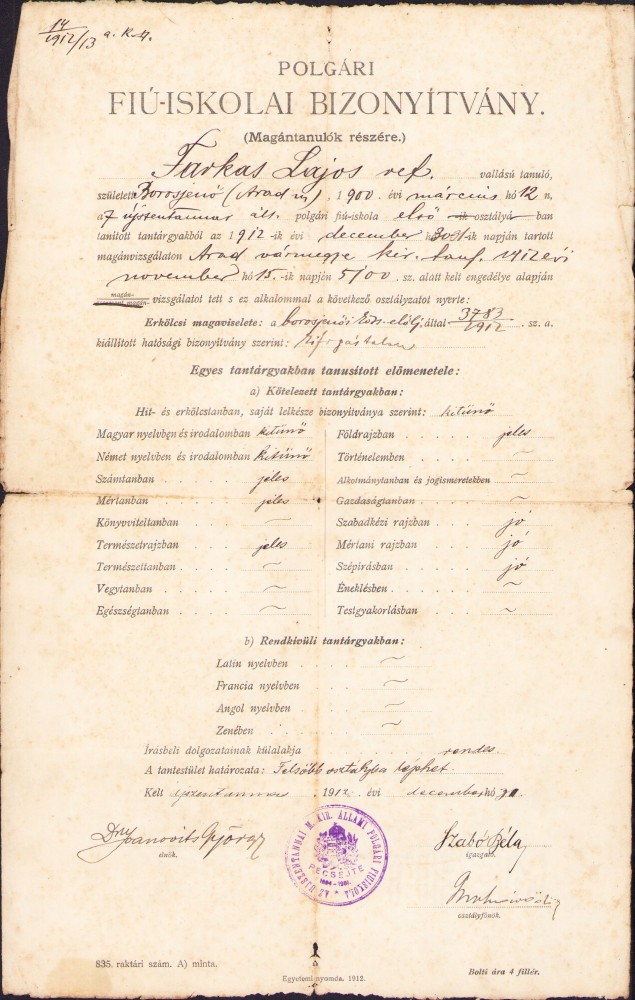 14
1912/13 a. K. 
POLGÁRI
FIÚ-ISKOLAI BIZONYÍTVÁNY.
(Magántanulók részére.)
Farkas Lajos ref. vallású tanuló,
született Borosjenő (Arad m), 1900. évi március hó 12 n,
a ujszentannai áll. polgári fiú-iskola első osztályá- ban
tanított tantárgyakból az 1912 -ik évi december hó -ik napján tartott
magánvizsgálaton Arad vármegye kir. tanf. évi
november hó 15.-ik napján 5100. sz. alatt kelt engedélye alapján
magán- vizsgálatot tett s ez alkalommal a következő osztályzatot nyerte:
Erkölcsi magaviselete: a borosjenői előlj. által 3783/1912. sz. a.
kiállított hatósági bizonyítvány szerint: kifogástalan
Egyes tantárgyakban tanusított előmenetele:
a) Kötelezett tantárgyakban:
Hit- és erkölcstanban, saját lelkésze bizonyítványa szerint: kitünő
Magyar nyelvben és irodalomban kitünő
Német nyelvben és irodalomban kitünő
Számtanban . . . . jeles
Mértanban . . . . jeles
Könyvviteltanban . . . ~
Természetrajzban . . . jeles
Természettanban . . . ~
Vegytanban . . . . ~
Egészségtanban . . . . ~
Földrajzban . . . . jeles
Történelemben . . . . ~
Alkotmánytanban és jogismeretekben . ~
Gazdaságtanban . . . ~
Szabadkézi rajzban . . . jó
Mértani rajzban . . . jó
Szépírásban . . . . jó
Éneklésben . . . . ~
Testgyakorlásban . . . ~
b) Rendkívüli tantárgyakban:
Latin nyelvben . . . ~
Francia nyelvben . . . ~
Angol nyelvben . . . ~
Zenében . . . . ~
Írásbeli dolgozatainak külalakja rendes
A tantestület határozata: Felsőbb osztályba léphet.
Kelt Ujszentannán 1912. évi december hó
Dr Ivanovits György
elnök.
AZ UJSZENTANNAI M. KIR. ÁLLAMI POLGÁRI FIUISKOLA
PECSÉJTE
Szabó Béla
igazgató.
osztályfőnök.
835. raktári szám. A) minta.
Egyetemi nyomda. 1912.
Bolti ára 4 fillér.